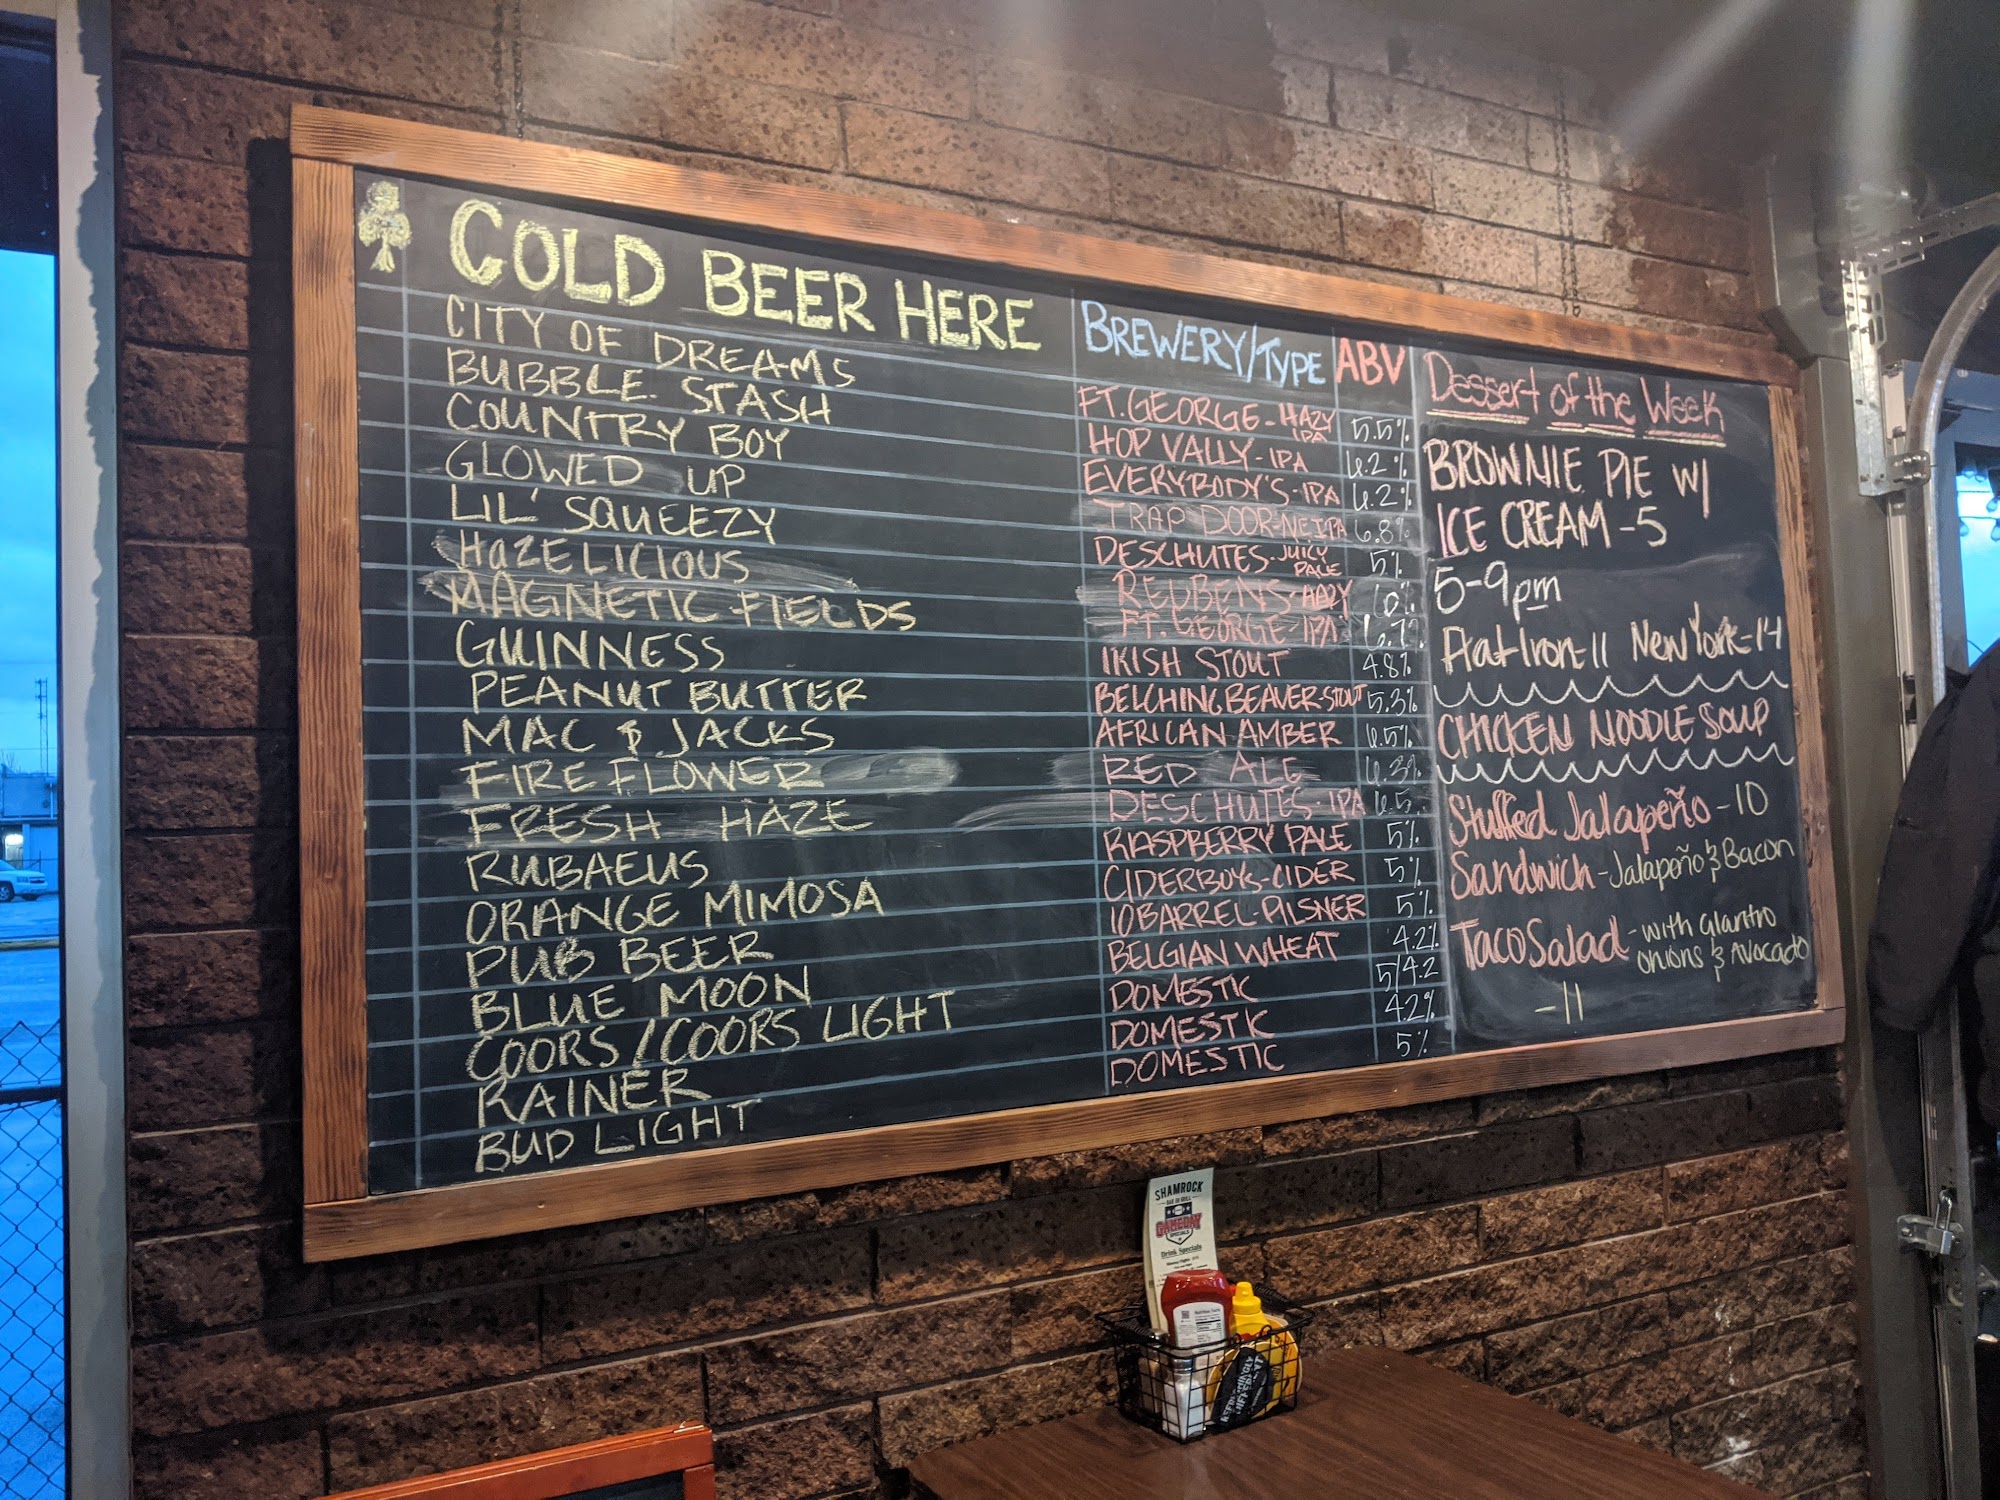 COLD BEER HERE BREWERY/TYPE ABV
CITY OF DREAMS FT. GEORGE - HAZY IPA 5.5%
BUBBLE STASH HOP VALLY - IPA 6.2%
COUNTRY BOY EVERYBODY'S - IPA 6.2%
GLOWED UP TRAP DOOR - NEIPA 6.8%
LIL' SQUEEZY DESCHUTES - JUICY PALE 5%
HAZELICIOUS REUBENS - HAZY 6%
MAGNETIC FIELDS FT. GEORGE - IPA 6.7%
GUINNESS IRISH STOUT 4.8%
PEANUT BUTTER BELCHING BEAVER - STOUT 5.3%
MAC & JACKS AFRICAN AMBER 6.5%
FIRE FLOWER RED ALE 6.3%
FRESH HAZE DESCHUTES - IPA 6.5
RUBAEUS RASPBERRY PALE 5%
ORANGE MIMOSA CIDERBOYS - CIDER 5%
PUB BEER 10 BARREL - PILSNER 5%
BLUE MOON BELGIAN WHEAT 4.2%
COORS / COORS LIGHT DOMESTIC 5/4.2
RAINER DOMESTIC 4.2%
BUD LIGHT DOMESTIC 5%
Dessert of the Week
BROWNIE PIE W/
ICE CREAM - 5
5-9pm
Flat Iron - 11 New York - 14
CHICKEN NOODLE SOUP
Stuffed Jalapeño - 10
Sandwich - Jalapeño & Bacon
Taco Salad - with cilantro
onions & Avocado
- 11
SHAMROCK
BAR & GRILL
GAMEDAY
SPECIALS
Drink Specials